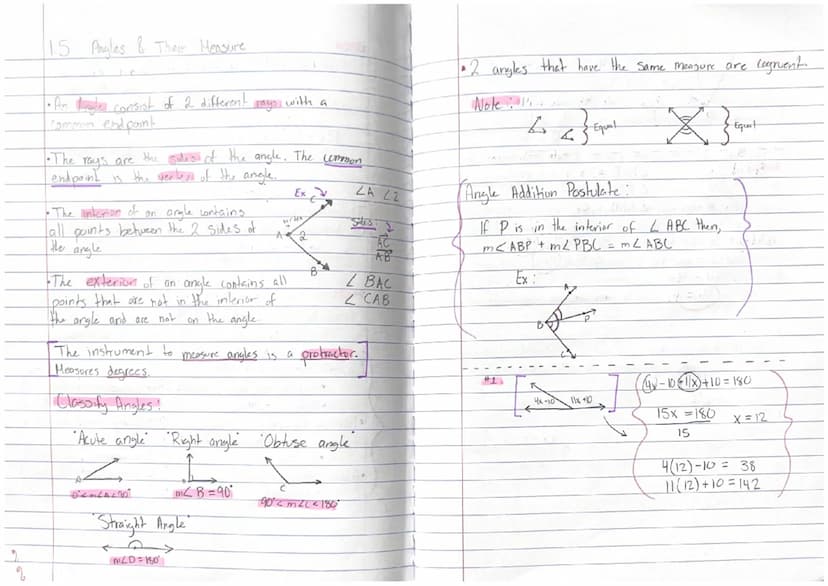 1.5 Angles & Their Measure
• An Angle consist of 2 different rays with a
common endpoint
• The rays are the sides of the angle. The common
endpoint is the vertex of the angle.
• The interior of an angle contains
all points between the 2 sides of
the angle
• The exterior of an angle contains all
points that are not in the interior of
the angle and are not on the angle
Ex
C
A 2
B
∠A ∠2
Sides
AC
AB
∠ BAC
∠ CAB
The instrument to measure angles is a protractor.
Measures degrees.
Classify Angles:
"Acute angle" "Right angle" "Obtuse angle"
A
C
0°<m∠A<90° m∠B=90° 90°<m∠C<180°
"Straight Angle"
m∠D=180°
• 2 angles that have the same measure are congruent
Note:
Equal
Equal
Angle Addition Postulate:
If P is in the interior of ∠ ABC then,
m∠ABP + m∠PBC = m∠ABC
Ex:
A
B
P
C
#1
4x-10 11x+10
4x-10+11x+10=180
15x=180
15
x=12
4(12)-10= 38
11(12)+10=142
2